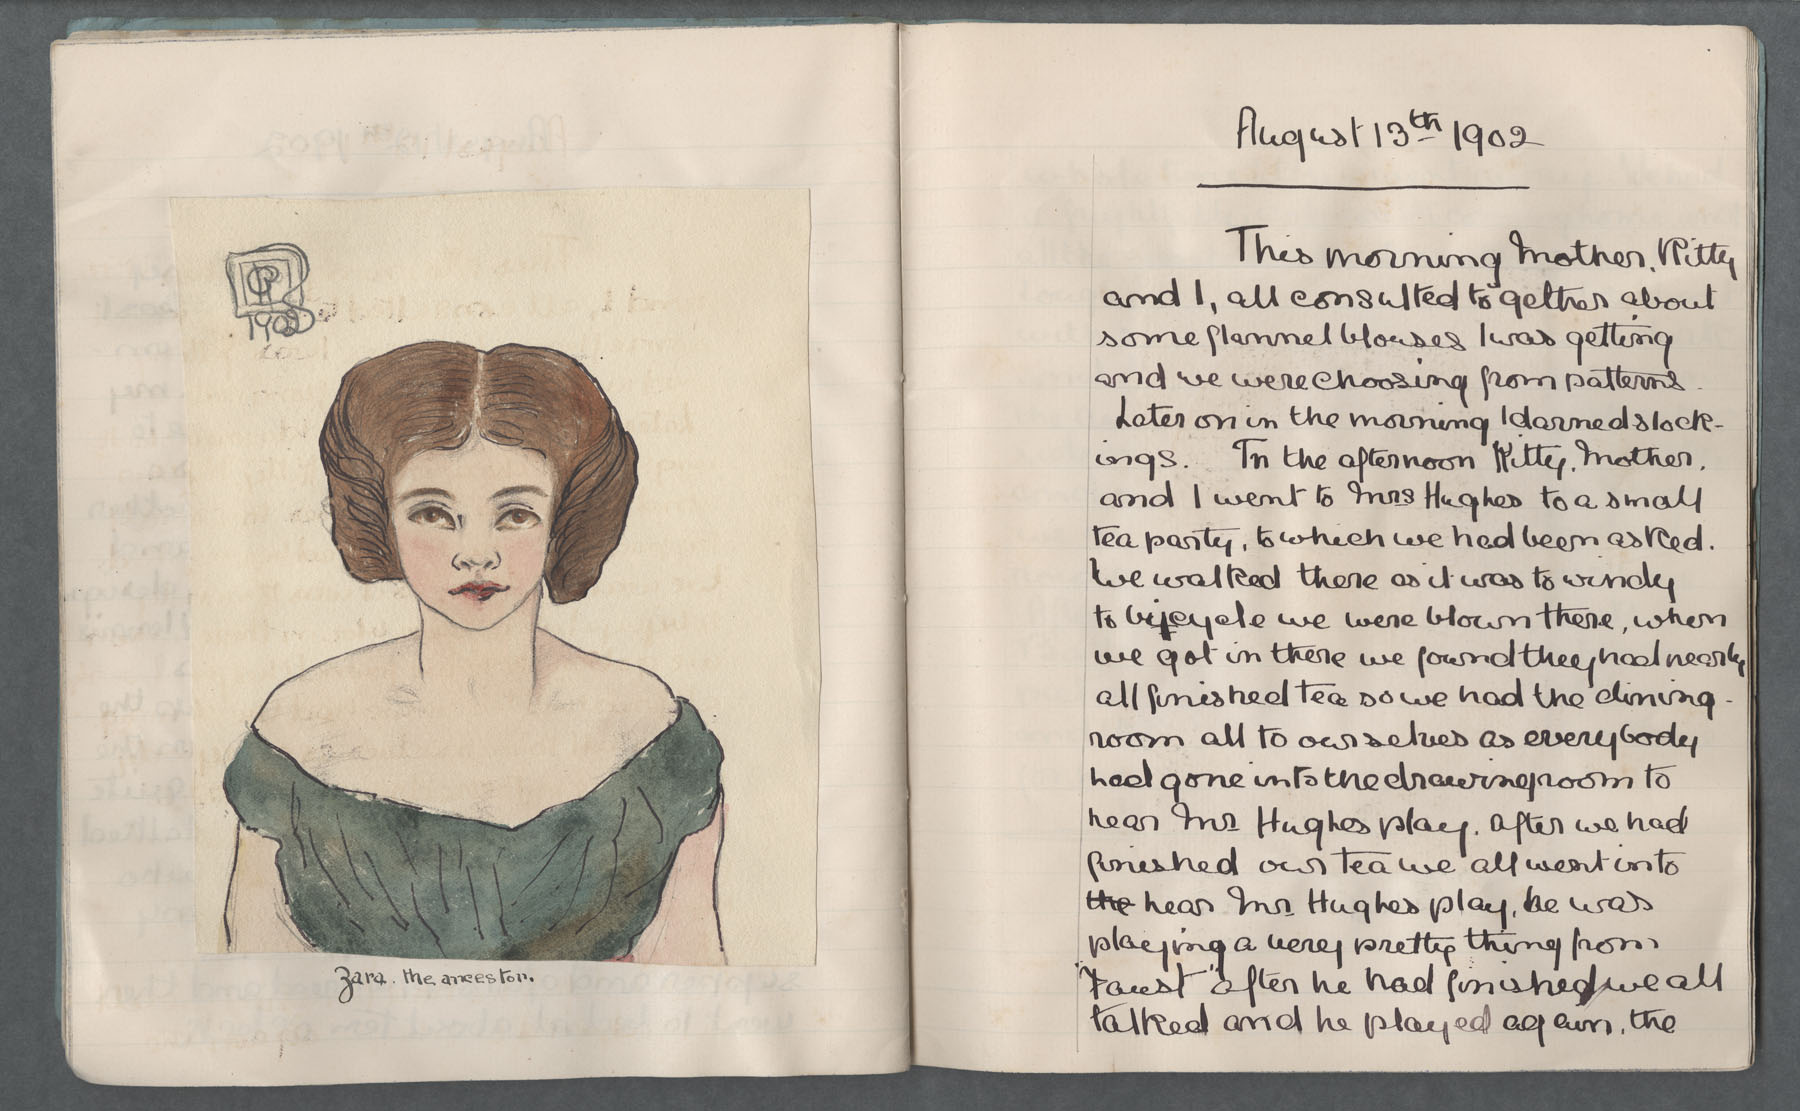 1902
Zara. the ancestor.
August 13th 1902
This morning Mother, Kitty
and I, all consulted to gether about
some flannel blouses I was getting
and we were choosing from patterns.
Later on in the morning I darned stock-
ings. In the afternoon Kitty, Mother,
and I went to Mrs Hughes to a small
tea party, to which we had been asked.
We walked there as it was to windy
to bijcycle we were blown there, when
we got in there we found they had nearly
all finished tea so we had the dining-
room all to ourselves as everybody
had gone into the drawingroom to
hear Mr Hughes play. After we had
finished our tea we all went into
the hear Mr Hughes play, he was
playing a very pretty thing from
"Faust" after he had finished we all
talked and he played again, the